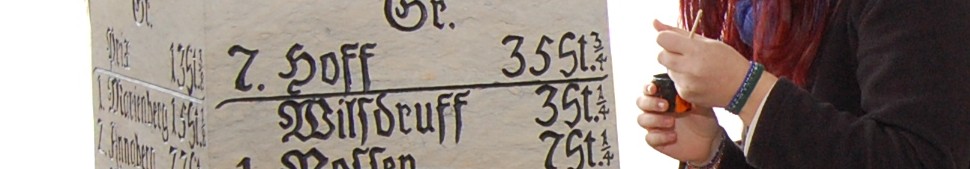 Gr.
Preiz 13St.¾
1. Marienberg 15St.¾
2. Annaberg
Gr.
7. Hoff 35St.¾
Wilsdruff 3St.¼
1. Nossen 7St.¼